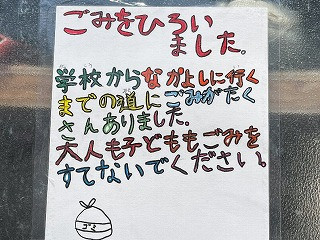 ごみをひろい
ました。
学校からなかよしに行く
までの道にごみがたく
さんありました。
大人も子どももごみを
すてないでください。
ゴミ